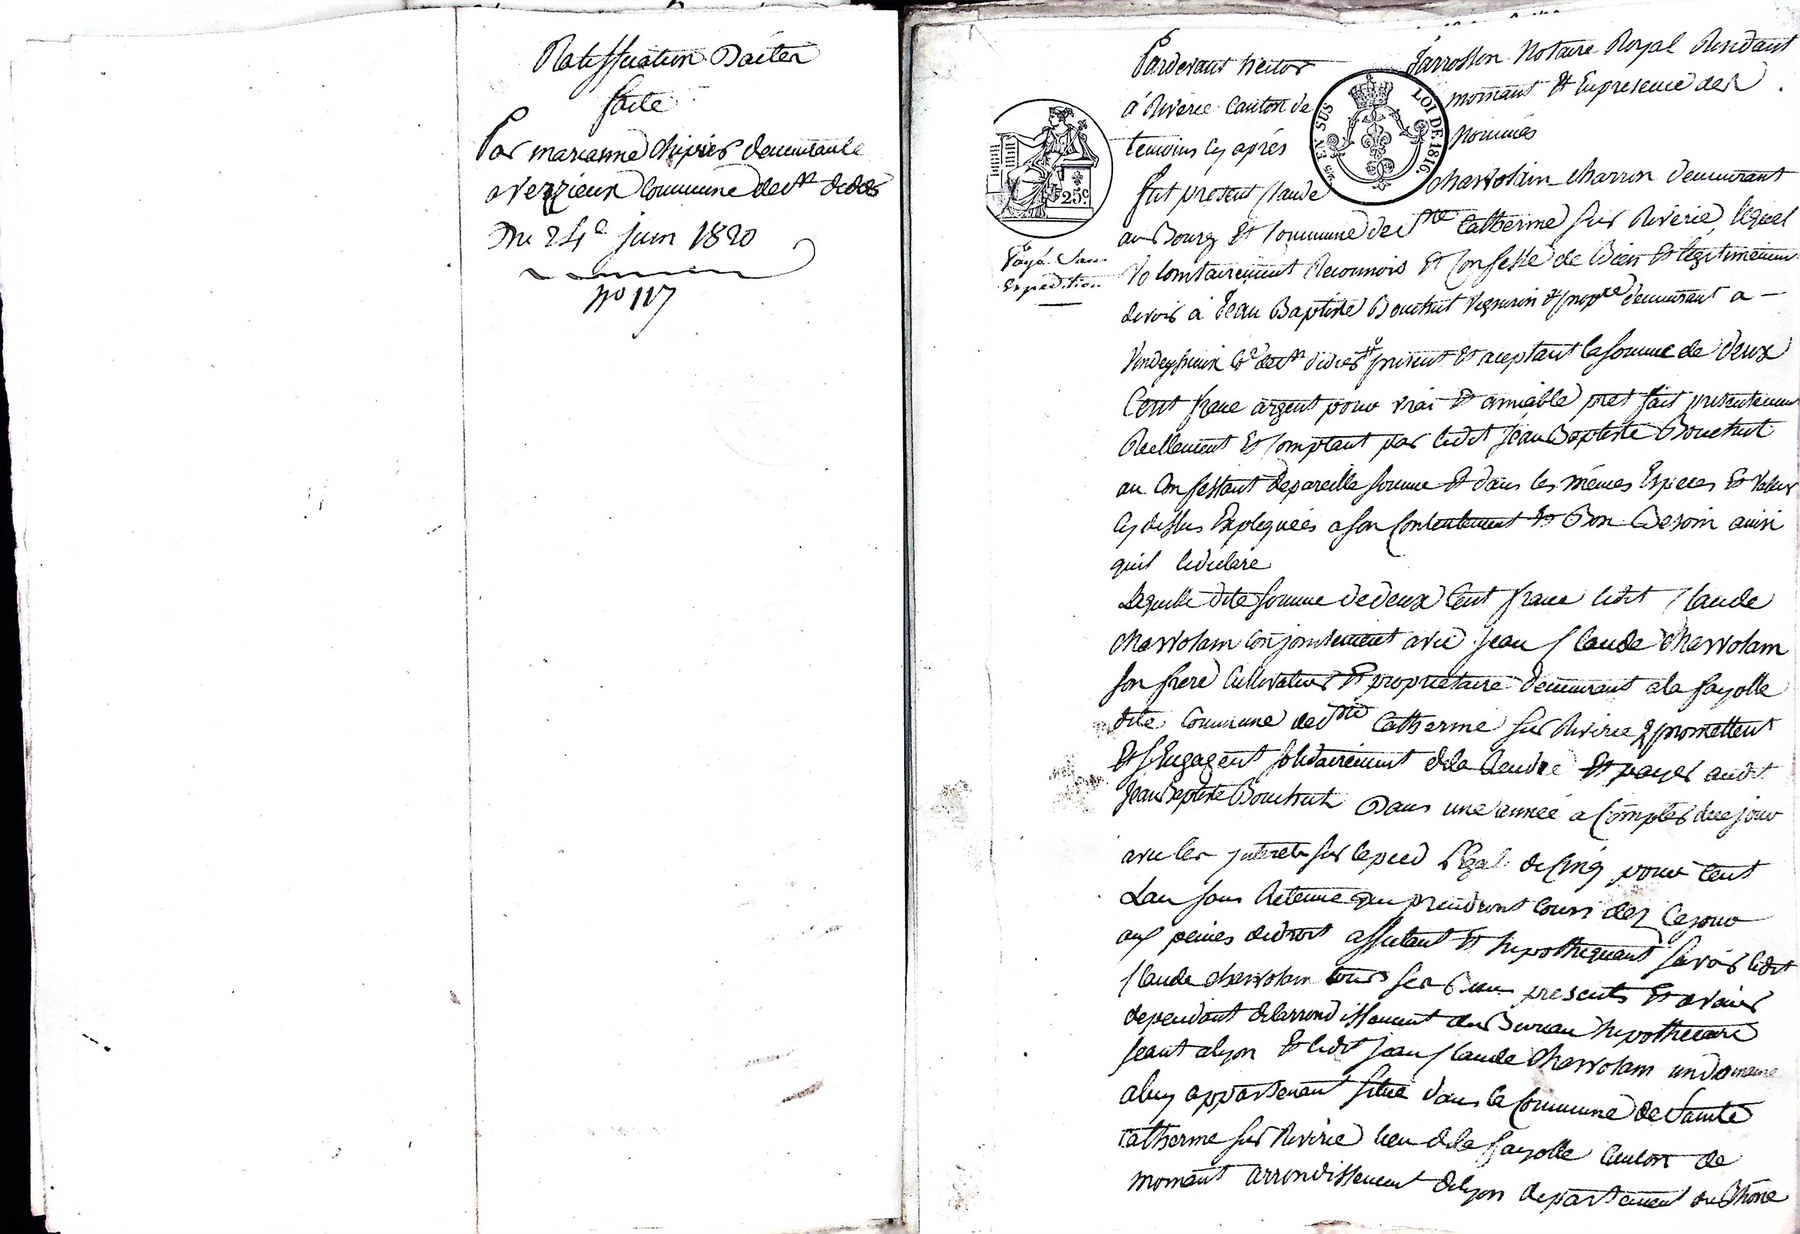 Ratiffication Dacter
faite
Par marianne chipier demeurante
a verzieux Commune de st didier
Du 24e juin 1820
No 117
Pardevant hector Jarrosson Notaire Royal Residant
à Riverie Canton de mornant Et En presence des
temoins cy après Nommés
fut présent Claude chavrolain charron demeurant
au Bourg Et Commune de Ste Catherine sur Riverie, lequel
volontairement Reconnois Et Confesse de Bien Et légitimement
devoir à Jean Baptiste Bouchut vigneron & propre demeurant a
Ce de st didier present Et aceptant la somme de deux
Cent franc argent pour vrai Et amiable pret fait presentement
Reellement Et Comptant par ledit Jean Baptiste Bouchut
au Confessant de pareille somme Et dans les mêmes Especes Et valeur
Cy dessus Expliquées a son Contentement Et Bon Besoin ainsi
quil le déclare
Laquelle dite somme de deux Cent franc ledit Claude
chavrolain Conjointement avec Jean Claude chavrolain
son frere Cultivateur Et propriétaire demeurant a la fayolle
dite Commune de Ste Catherine sur Riverie promettent
Et sEngagent solidairement de la Rendre Et payer audit
Jean Baptiste Bouchut Dans une année a Compter de ce jour
avec les jnterets sur le pied légal de Cinq pour Cent
Lan sans Retenue qui prendront Cours dez Ce jour
aux peines de droit affectant Et hypothequant savoir ledit
Claude chavrolain tous ses Biens presents Et avenir
dependant de larrondissement du Bureau hypothecaire
séant a lyon Et ledit Jean Claude chavrolain un domaine
a luy appartenant situé dans la Commune de Sainte
Catherine sur Riverie lieu de la fayolle Canton de
mornant arrondissement de lyon departement du Rhone
Payé
Expedition
EN SUS
LOI DE 1816
25c